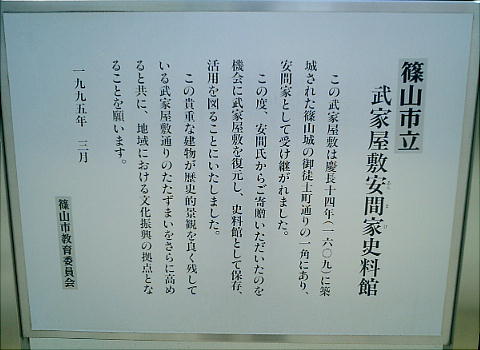 篠山市立
武家屋敷安間家史料館
この武家屋敷は慶長十四年(一六〇九)に築
城された篠山城の御徒士町通りの一角にあり、
安間家として受け継がれました。
この度、安間氏からご寄贈いただいたのを
機会に武家屋敷を復元し、史料館として保存、
活用を図ることにいたしました。
この貴重な建物が歴史的景観を良く残して
いる武家屋敷通りのたたずまいをさらに高め
ると共に、地域における文化振興の拠点とな
ることを願います。
一九九五年 三月
篠山市教育委員会